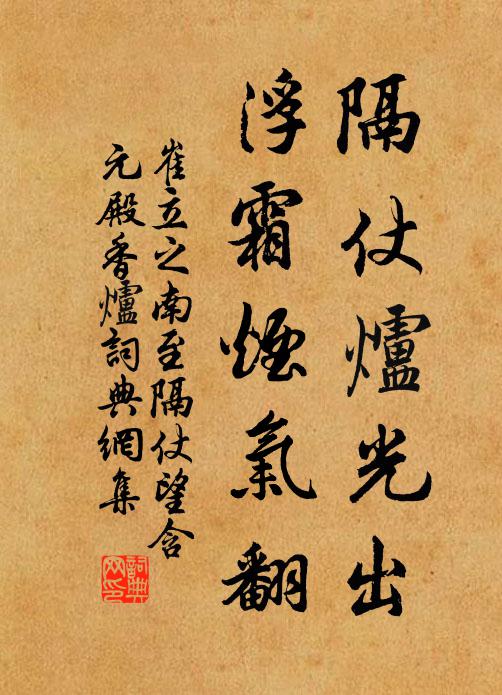 隔仗爐光出
浮霜煙氣翻
崔立之南至隔仗望含
元殿香爐詞典網集
詞典
网印